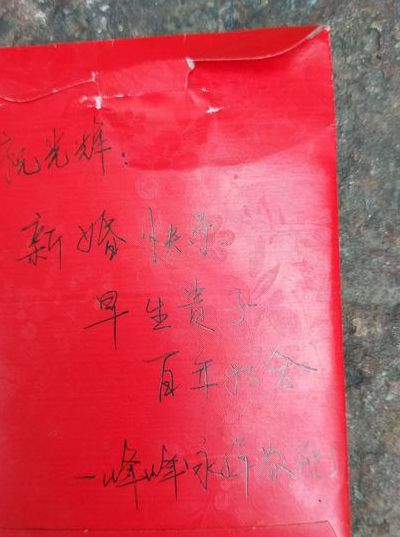 阮光辉:
新婚快乐
早生贵子
百年好合
—峰峰咏萍敬祝